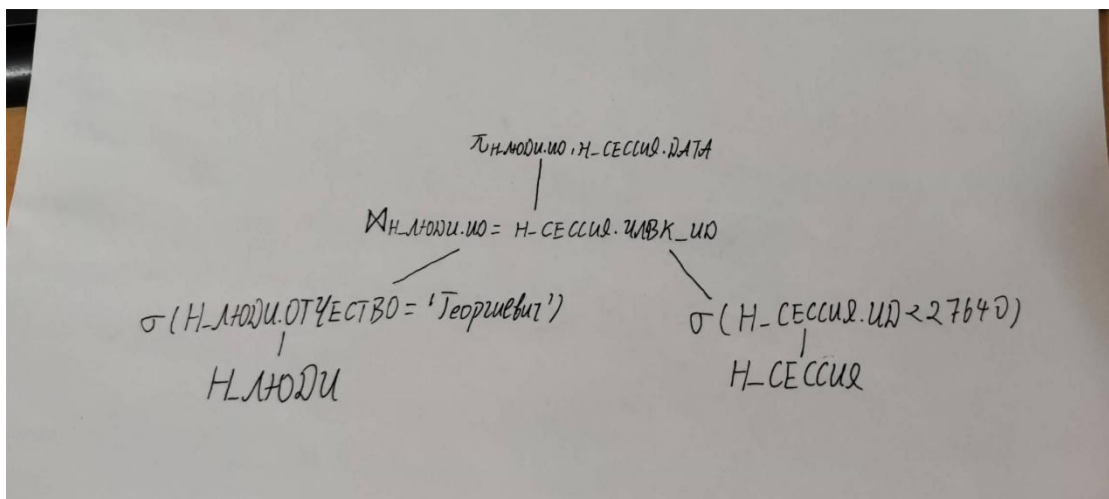 π Н_ЛЮДИ.ИД, Н_СЕССИЯ.DАТА
⋈ Н_ЛЮДИ.ИД = Н_СЕССИЯ.ЧЛВК_ИД
σ (Н_ЛЮДИ.ОТЧЕСТВО = 'Георгиевич') σ (Н_СЕССИЯ.ИД < 27640)
Н_ЛЮДИ Н_СЕССИЯ